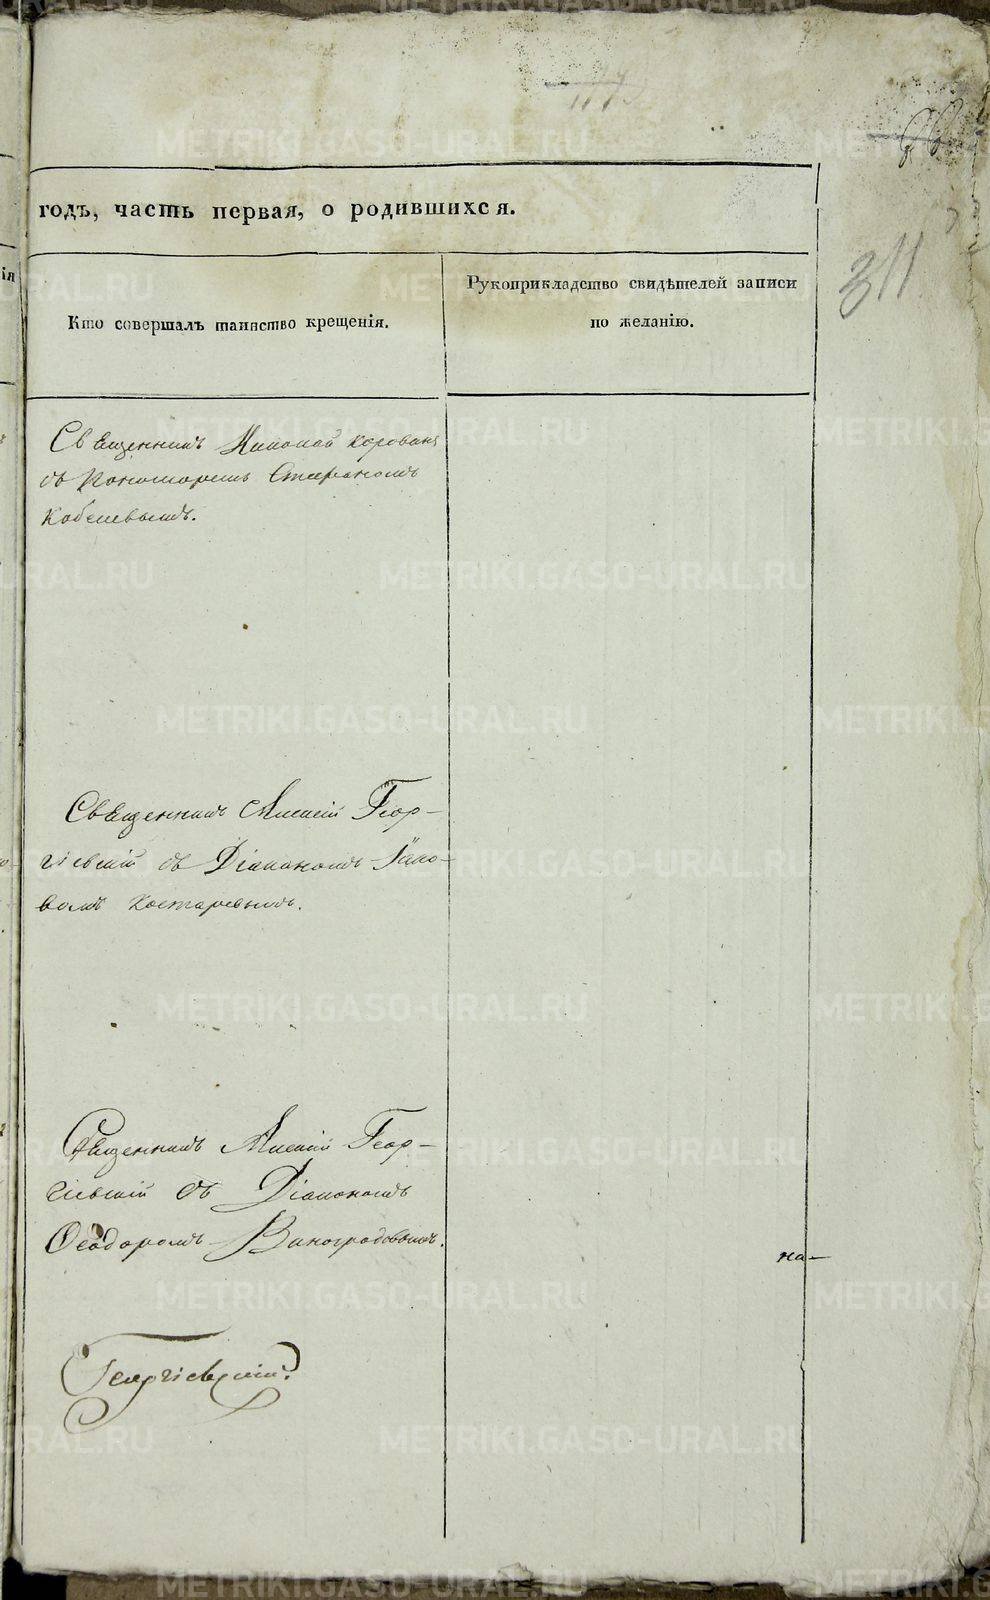 66
годъ, часть первая, о родившихся.
311
ія
Кто совершалъ таинство крещенія.
Рукоприкладство свидѣтелей записи
по желанію.
Священникъ Николай
съ Пономаремъ Стефаномъ
Кобелевымъ.
Священникъ Алексій Геор-
гіевскій съ Діакономъ Іако-
вомъ Костаревымъ.
Священникъ Алексій Геор-
гіевскій съ Діакономъ
Ѳеодоромъ Виноградовымъ.
на-
Георгіевскій.
METRIKI.GASO-URAL.RU